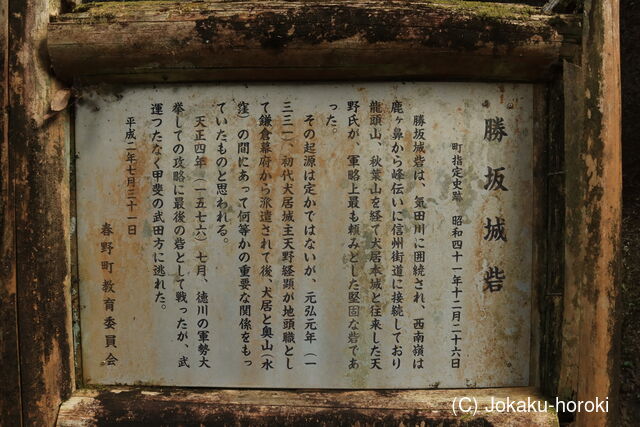 勝坂城砦
町指定史跡　昭和四十一年十二月二十六日
勝坂城砦は、気田川に囲繞され、西南嶺は
鹿ヶ鼻から峰伝いに信州街道に接続しており
龍頭山、秋葉山を経て犬居本城と往来した天
野氏が、軍略上最も頼みとした堅固な砦であ
った。
その起源は定かではないが、元弘元年（一
三三一）、初代犬居城主天野経顕が地頭職とし
て鎌倉幕府から派遣されて後、犬居と奥山（水
窪）の間にあって何等かの重要な関係をもっ
ていたものと思われる。
天正四年（一五七六）七月、徳川の軍勢大
挙しての攻略に最後の砦として戦ったが、武
運つたなく甲斐の武田方に逃れた。
平成二年七月三十一日
春野町教育委員会
(C) Jokaku-horoki